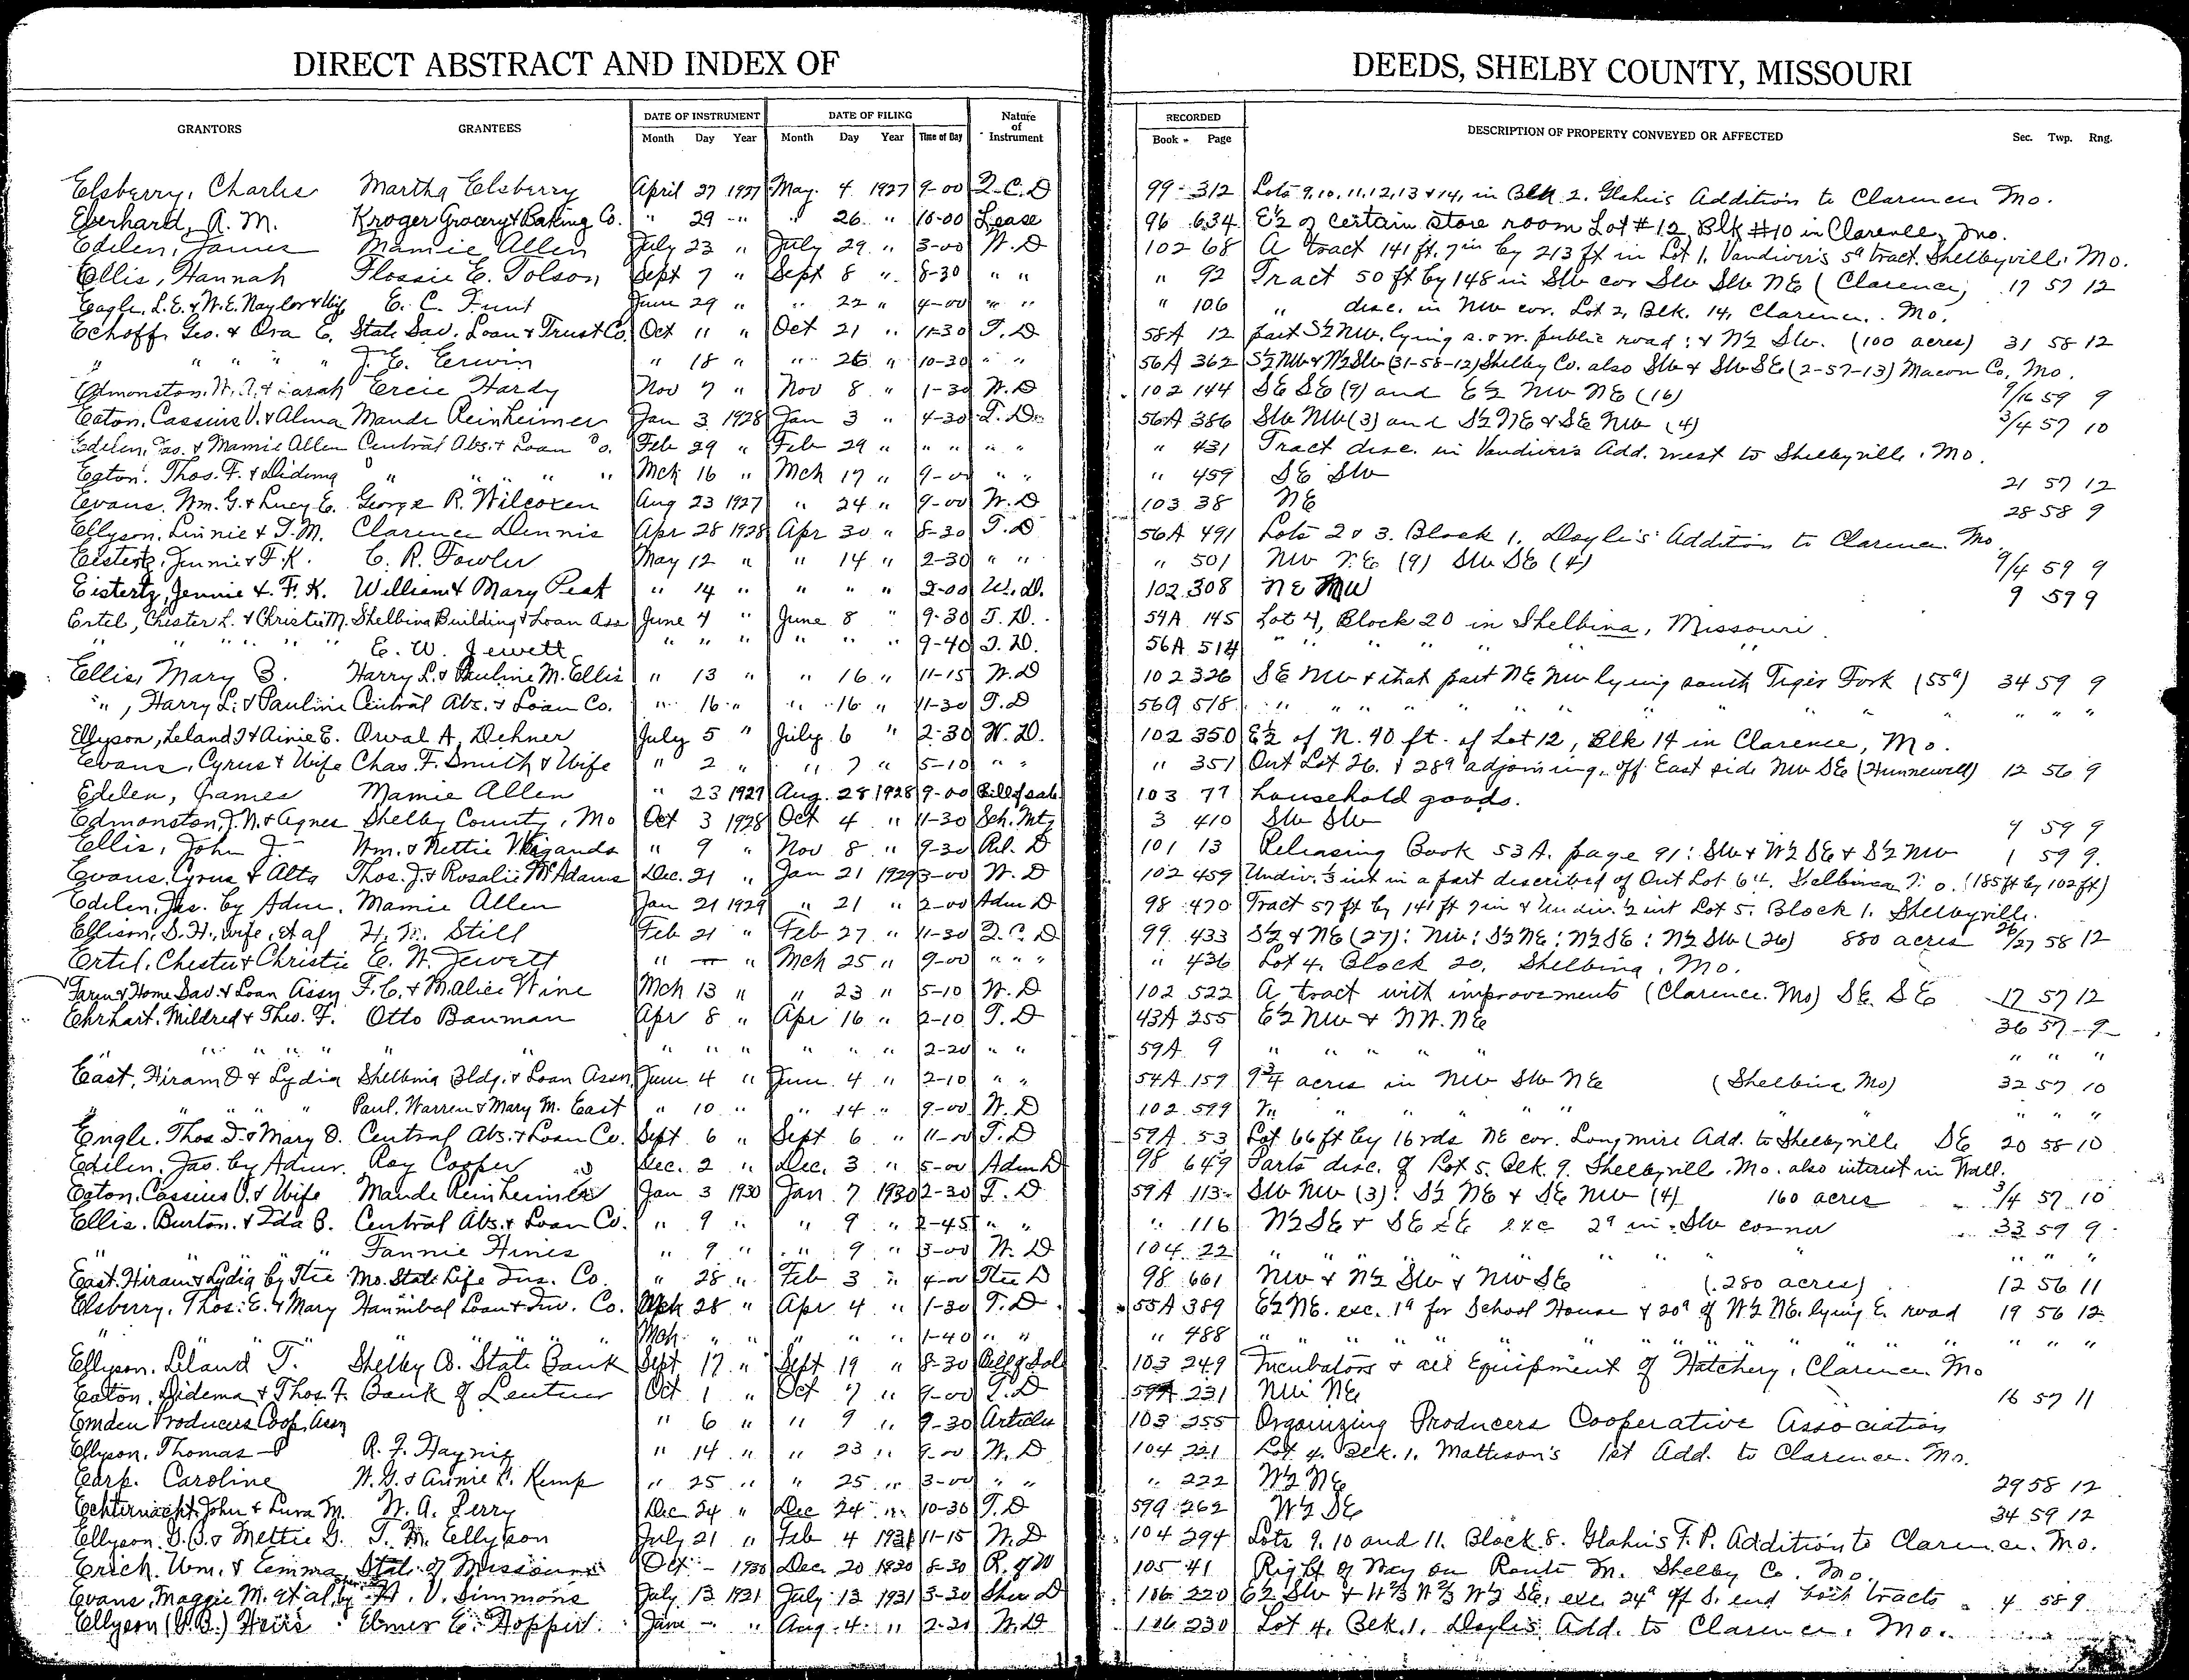 DIRECT ABSTRACT AND INDEX OF DEEDS, SHELBY COUNTY, MISSOURI
GRANTORS GRANTEES DATE OF INSTRUMENT DATE OF FILING Nature of Instrument RECORDED DESCRIPTION OF PROPERTY CONVEYED OR AFFECTED Sec. Twp. Rng.
Month Day Year Month Day Year Time of Day Book - Page
Elsberry, Charles Martha Elsberry April 27 1927 May 4 1927 9-00 Q.C.D 99-312 Lots 9,10,11,12,13 & 14, in Blk 2. Glahn's Addition to Clarence Mo.
Eberhard, A. M. Kroger Grocery & Baking Co. " 29 " " 26 " 10-00 Lease 96 634 E½ of certain store room Lot #12, Blk #10 in Clarence, Mo.
Edelen, James Mamie Allen July 23 " July 29 " 3-00 W.D 102 68 A tract 141 ft. 7 in by 213 ft in Lot 1. Vandiver's 5a tract. Shelbyville. Mo.
Ellis, Hannah Flossie E. Tolson Sept 7 " Sept 8 " 8-30 " " " 92 Tract 50 ft by 148 in SW cor SW SW NE (Clarence) 17 57 12
Eagle, L.E. & W.E. Naylor & Wife E. C. June 29 " " 22 " 4-00 " " " 106 " disc. in NW cor. Lot 2, Blk. 14, Clarence. Mo.
Echoff, Geo. & Ora E. State Sav. Loan & Trust Co. Oct 11 " Oct 21 " 11-30 T.D 58A 12 part S½ NW. lying s. & w. public road: & N½ SW. (100 acres) 31 58 12
" " " " " J. E. Erwin " 18 " " 26 " 10-30 " " 56A 362 S½ NW & N½ SW (31-58-12) Shelby Co. also SW & SW SE (2-57-13) Macon Co, Mo.
Edmonston, W. T. & Sarah Ercie Hardy Nov 7 " Nov 8 " 1-30 W.D 102 144 SE SE (9) and E½ NW NE (16) 9/16 59 9
Eaton, Cassius V. & Alma Maude Reinheimer Jan 3 1928 Jan 3 " 4-30 T.D. 56A 386 SW NW (3) and S½ NE & SE NW (4) 3/4 57 10
Edelen, Jas. & Mamie Allen Central Abs. & Loan Co. Feb 29 " Feb 29 " " " " " " 431 Tract disc. in Vandiver's Add. west to Shelbyville. Mo.
Eaton. Thos. F. & Didema " " " " Mch 16 " Mch 17 " 9-00 " " " 459 SE SW 21 57 12
Evans, Wm. G. & Lucy E. George R. Wilcoxen Aug 23 1927 " 24 " 9-00 W.D 103 38 NE 28 58 9
Ellyson, Linnie & T.M. Clarence Dennis Apr 28 1928 Apr 30 " 8-30 T.D 56A 491 Lots 2 & 3. Block 1, Doyle's Addition to Clarence Mo
Eistertz, Jennie & F.K. C. R. Fowler May 12 " " 14 " 2-30 " " " 501 NW NE (9) SW SE (4) 9/4 59 9
Eistertz, Jennie & F. K. William & Mary Peat " 14 " " " " 2-00 W.D. 102 308 NE NW 9 59 9
Ertel, Chester L. & Christie M. Shelbina Building & Loan Ass June 4 " June 8 " 9-30 T.D. 54A 145 Lot 4, Block 20 in Shelbina, Missouri.
" " " " " E. W. Jewett " " " " " " 9-40 T.D. 56A 514 " " " " " "
Ellis, Mary B. Harry L. & Pauline M. Ellis " 13 " " 16 " 11-15 W.D 102 326 SE NW & that part NE NW lying south Tiger Fork (55a) 34 59 9
", Harry L. & Pauline Central Abs. & Loan Co. " 16 " " 16 " 11-30 T.D 569 518 " " " " " " " " " " " "
Ellyson, Leland T & Ainie E. Orval A. Dehner July 5 " July 6 " 2-30 W.D. 102 350 E½ of N. 40 ft. of Lot 12, Blk 14 in Clarence, Mo.
Evans, Cyrus & Wife Chas. F. Smith & Wife " 2 " " 7 " 5-10 " " " 351 Out Lot 26. & 28a adjoining, off East side NW SE (Hunnewell) 12 56 9
Edelen, James Mamie Allen " 23 1927 Aug. 28 1928 9-00 Bill of sale 103 77 household goods.
Edmonston, J. N. & Agnes Shelby County, Mo Oct 3 1928 Oct 4 " 11-30 Sch. Mtg 3 410 SW SW 4 59 9
Ellis, John J. Wm. & Nettie Wiegands " 9 " Nov 8 " 9-30 Rel. D 101 13 Releasing Book 53A. page 91: SW & W½ SE & S½ NW 1 59 9.
Evans, Cyrus & Alta Thos. J. & Rosalie McAdams Dec. 21 " Jan 21 1929 3-00 W.D 102 459 Undiv. ⅓ int in a part described of Out Lot 64. Shelbina Mo. (185 ft by 102 ft)
Edelen, Jas. by Adm. Mamie Allen Jan 21 1929 " 21 " 2-00 Adm D 98 470 Tract 57 ft by 141 ft 7 in & Undiv. ½ int Lot 5. Block 1. Shelbyville.
Ellison, S.H., wife, et al H. M. Still Feb 21 " Feb 27 " 11-30 Q.C.D 99 433 S½ & NE (27): NW: S½ NE: N½ SE: N½ SW (26) 880 acres 26/27 58 12
Ertel, Chester & Christie E. W. Jewett " — " Mch 25 " 9-00 " " " " 436 Lot 4. Block 20. Shelbina, Mo.
Farm & Home Sav. & Loan Assn F. C. & Malice Wine Mch 13 " " 23 " 5-10 W.D 102 522 A tract with improvements (Clarence. Mo) SE SE 17 57 12
Ehrhart. Mildred & Theo. F. Otto Bauman Apr 8 " Apr 16 " 2-10 T.D 43A 255 E½ NW & NW. NE 36 57 9
" " " " " " " " " " " " 2-20 " " 59A 9 " " " " " " " "
East, Hiram D & Lydia Shelbina Bldg. & Loan Assn June 4 " June 4 " 2-10 " " 54A 159 9¾ acres in NW SW NE (Shelbina Mo) 32 57 10
" " " " Paul. Warren & Mary M. East " 10 " " 14 " 9-00 W.D 102 599 " " " " " " " " " "
Engle. Thos D. & Mary D. Central Abs. & Loan Co. Sept 6 " Sept 6 " 11-00 T.D 59A 53 Lot 66 ft by 16 rds NE cor. Longmire Add. to Shelbyville SE 20 58 10
Edelen. Jas. by Admr. Roy Cooper Dec. 2 " Dec. 3 " 5-00 Adm D 98 649 Parts disc. of Lot 5. Blk. 9. Shelbyville. Mo. also interest in Wall.
Eaton, Cassius V. & Wife Maude Reinheimer Jan 3 1930 Jan 7 1930 2-30 T.D 59A 113 SW NW (3): S½ NE & SE NW (4) 160 acres 3/4 57 10
Ellis. Burton. & Ida B. Central Abs. & Loan Co. " 9 " " 9 " 2-45 " " " 116 W½ SE & SE SE exc 2a in SW corner 33 59 9
" " " " Fannie Hines " 9 " " 9 " 3-00 W.D 104 22 " " " " " " " " " "
East. Hiram & Lydia by Ttee Mo. State Life Ins. Co. " 28 " Feb 3 " 4-00 Ttee D 98 661 NW & N½ SW & NW SE (280 acres) 12 56 11
Elsberry, Thos. E. & Mary Hannibal Loan & Inv. Co. Mch 28 " Apr 4 " 1-30 T.D 55A 389 E½ NE. exc. 1a for School House & 20a of W½ NE. lying E. road 19 56 12
" " " " " " " " Mch " " " " " 1-40 " " " 488 " " " " " " " " " " " " " " "
Ellyson. Leland T. Shelby Co. State Bank Sept 17 " Sept 19 " 8-30 Bill of Sale 103 249 Incubators & all Equipment of Hatchery, Clarence. Mo
Eaton, Didema & Thos. F. Bank of Lentner Oct 1 " Oct 7 " 9-00 T.D 59A 231 NW NE 16 57 11
Emden Producers Coop. Assn " 6 " " 9 " 9-30 Articles 103 255 Organizing Producers Cooperative Association
Ellyson, Thomas P R. F. Haynie " 14 " " 23 " 9-00 W.D 104 221 Lot 4. Blk. 1. Mattison's 1st Add. to Clarence. Mo.
Earp. Caroline W. G. & Annie L. Kemp " 25 " " 25 " 3-00 " " " 222 W½ NE 29 58 12
Echternacht, John & Lura M. W. A. Perry Dec 24 " Dec 24 " 10-30 T.D 599 262 W½ SE 34 59 12
Ellyson. G.B. & Mettie G. T. M. Ellyson July 21 " Feb 4 1931 11-15 W.D 104 294 Lots 9, 10 and 11. Block 8. Glahn's F.P. Addition to Clarence. Mo.
Erich. Wm. & Emma State of Missouri Oct — 1930 Dec 20 1930 8-30 R. of W 105 41 Right of Way on Route M. Shelby Co. Mo.
Evans, Maggie M. et al, by H. V. Simmons July 13 1931 July 13 1931 3-30 Sher D 106 220 E½ SW & W⅔ N⅔ W½ SE, exc 24a off S. end both tracts 4 58 9
Ellyson (G.B.) Heirs Elmer E. Hopper June — " Aug 4 " 2-30 W.D 106 230 Lot 4, Blk. 1. Doyle's Add. to Clarence, Mo.